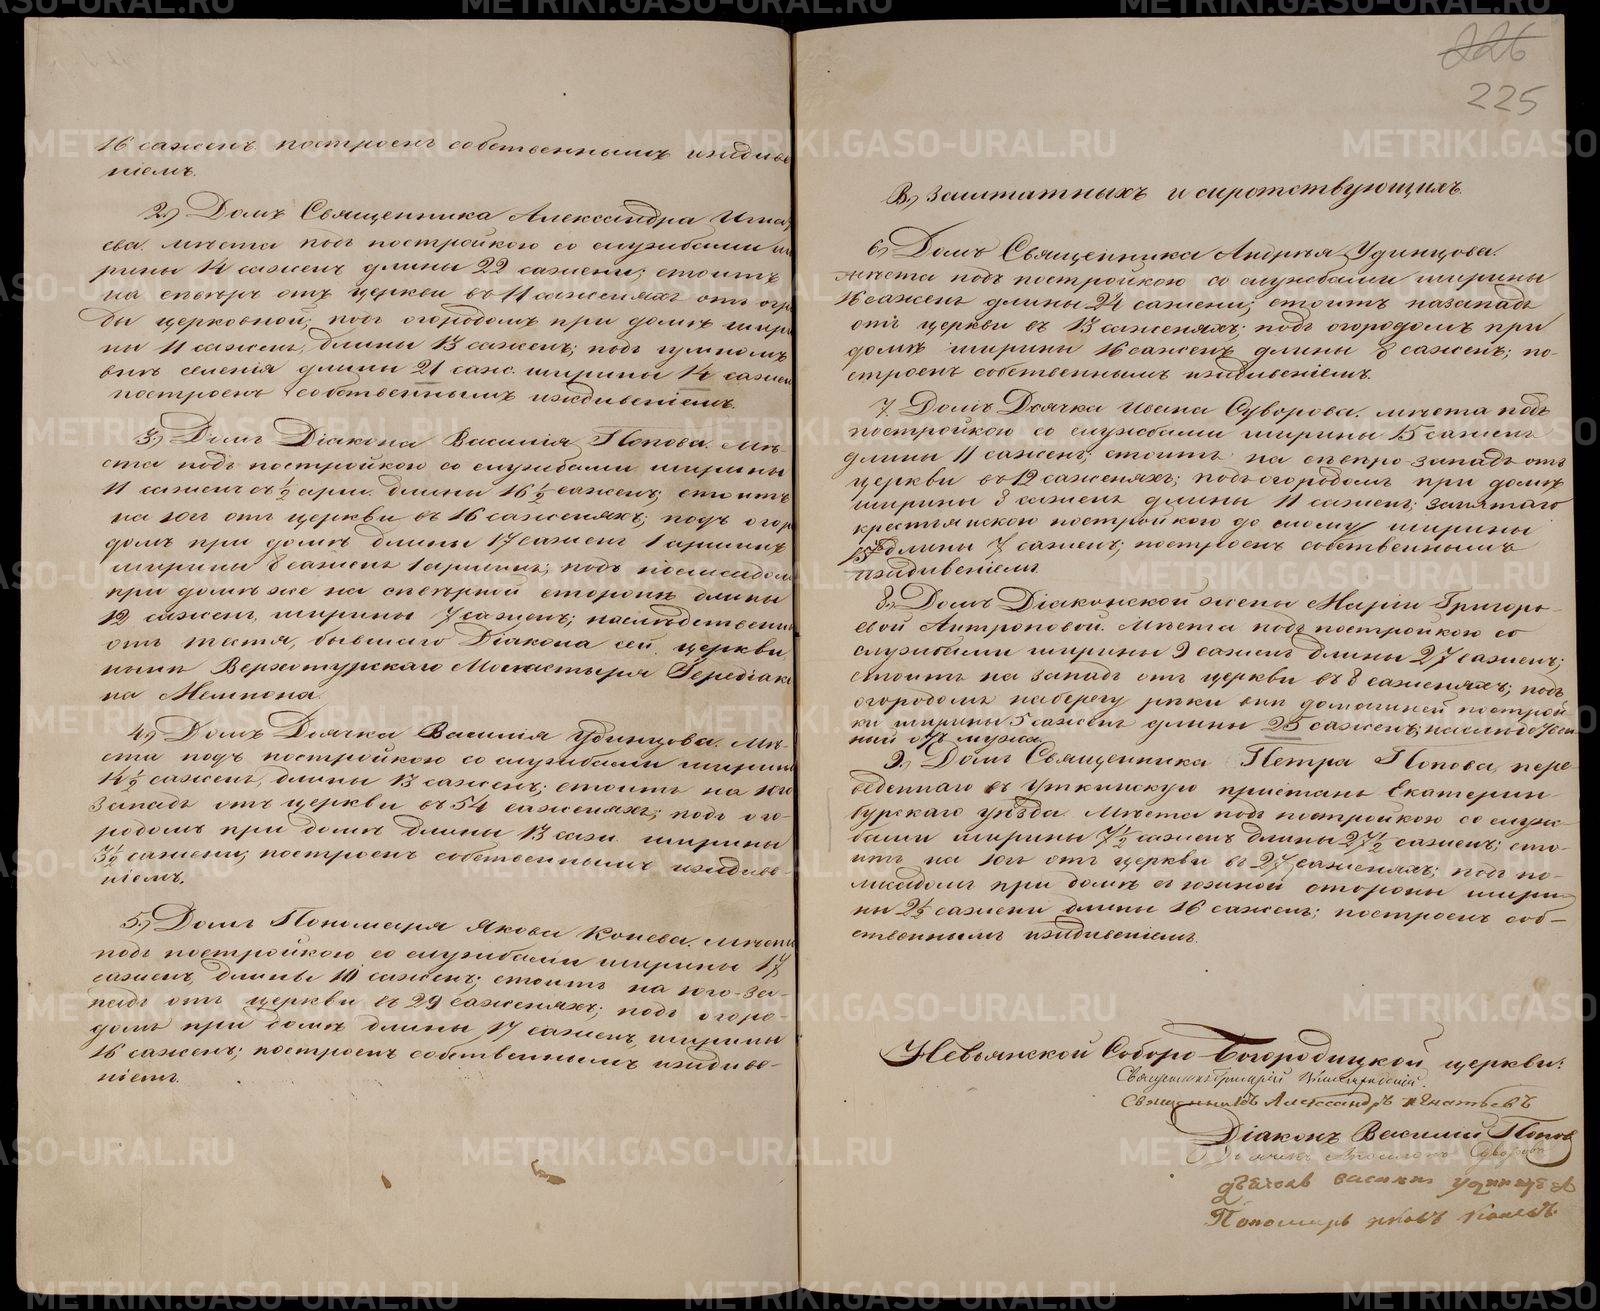 16 саженъ построенъ собственнымъ иждиве
ніемъ.
2.) Домъ Священника Александра Игна
ева. мѣста подъ постройкою со службами ши
рины 14 саженъ длины 22 сажени; стоитъ
на сѣверъ отъ церкви въ 11 саженяхъ отъ огра
ды церковной; подъ огородомъ при домѣ шири
ны 11 саженъ, длины 13 саженъ; подъ гумномъ
внѣ селенія длины 21 саж. ширины 14 сажен
построенъ собственнымъ иждивеніемъ.
3.) Домъ Діакона Василія Попова. Мѣ-
ста подъ постройкою со службами ширины
11 саженъ съ ½ арш. длины 16 ½ саженъ; стоитъ
на югъ отъ церкви въ 16 саженяхъ; подъ огоро
домъ при домѣ длины 17 саженъ 1 аршинъ
ширины 8 саженъ 1 аршинъ; подъ
при домѣ же на сѣверной сторонѣ длины
12 саженъ, ширины 7 саженъ; наслѣдственный
отъ тестя, бывшаго Діакона сей церкви
нынѣ Верхотурскаго Монастыря Іеродіако
на
4.) Домъ Дьячка Василія Удинцова. Мѣ-
ста подъ постройкою со службами ширины
14 ½ саженъ, длины 13 саженъ; стоитъ на юго
западъ отъ церкви въ 54 саженяхъ; подъ ого-
родомъ при домѣ длины 13 саж ширины
3½ сажени; построенъ собственнымъ иждиве-
ніемъ.
5.) Домъ Пономаря Якова Конева. мѣста
подъ постройкою со службами ширины 17
саженъ, длины 10 саженъ; стоитъ на юго-за-
падъ отъ церкви въ 29 саженяхъ; подъ огоро-
домъ при домѣ длины 17 саженъ ширины
16 саженъ; построенъ собственнымъ иждиве-
ніемъ.
226
225
В.) Заштатныхъ и сиротствующихъ
6.) Домъ Священника Андрея Удинцова.
мѣста подъ постройкою со службами ширины
16 саженъ длины 24 сажени; стоитъ назападъ
отъ церкви въ 13 саженяхъ; подъ огородомъ при
домѣ ширины 16 саженъ длины 8 саженъ; по-
строенъ собственнымъ иждивеніемъ.
7. Домъ Дьячка Ивана Суворова. мѣста подъ
постройкою со службами ширины 15 саженъ
длины 11 саженъ; стоитъ на сѣверо-западъ отъ
церкви въ 12 саженяхъ; подъ огородомъ при домѣ
ширины 8 саженъ длины 11 саженъ; занятаго
крестьянскою постройкою до ширины
длины 7 саженъ; построенъ собственнымъ
иждивеніемъ.
8.) Домъ Діаконской жены Маріи Григорь-
евой Антроповой. Мѣста подъ постройкою со
службами ширины 9 саженъ длины 27 саженъ;
стоитъ на западъ отъ церкви въ 8 саженяхъ; подъ
огородомъ наберегу рѣки внѣ домашней построй
ки ширины 5 саженъ длины 25 саженъ; наслѣдствен
ный отъ мужа.
9.) Домъ Священника Петра Попова, пере-
веденнаго въ Уткинскую пристань Екатерин-
бургскаго уѣзда. Мѣста подъ постройкою со служ-
бами ширины 7½ саженъ длины 27½ саженъ; сто-
итъ на югъ отъ церкви въ 27 саженяхъ; подъ по-
лисадомъ при домѣ съ южной стороны шири
ны 2½ сажени длины 16 саженъ; построенъ соб-
ственнымъ иждивеніемъ.
Невьянской Соборо-Богородицкой церкви:
Священникъ Григорій
Священникъ Александръ Игнатьевъ
Діаконъ Василий Попов
Дьячекъ Суворовъ
дьячекъ василий удинцовъ
Пономарь яковъ Коневъ
METRIKI.GASO-URAL.RU